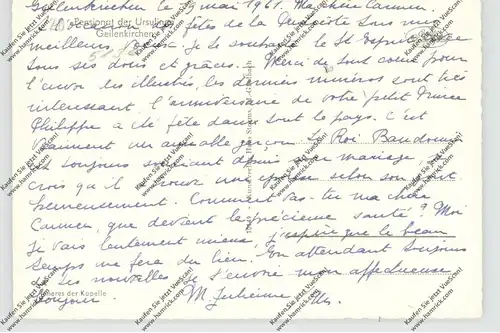 Geilenkirchen le mai 1961. Ma chère Carmen,
Pensionat der Ursulinen
Geilenkirchen
A l'occasion des fêtes de la Pentecôte tous mes
meilleurs vœux je te souhaite le St Esprit avec
tous ses dons et grâces. Merci de tout cœur pour
l'envoi les illustrés, les derniers numéros sont très
intéressant l'anniversaire de votre petit Prince
Philippe a été fêté dans tout le pays. C'est
vraiment un aimable garçon. Le Roi Baudouin
est toujours souriant depuis son mariage,
crois qu'il a trouvé une épouse selon son goût
heureusement. Comment vas-tu ma chère
Carmen, que devient ta précieuse santé? Moi
je vais lentement mieux, j'espère que le beau
temps me fera du bien. En attendant toujours
de tes nouvelles je t'envoie mon affectueux
bonjour. M. Julienne
Inneres der Kapelle
Kaufen Sie Jetzt VueScan!
www.hamrick.com